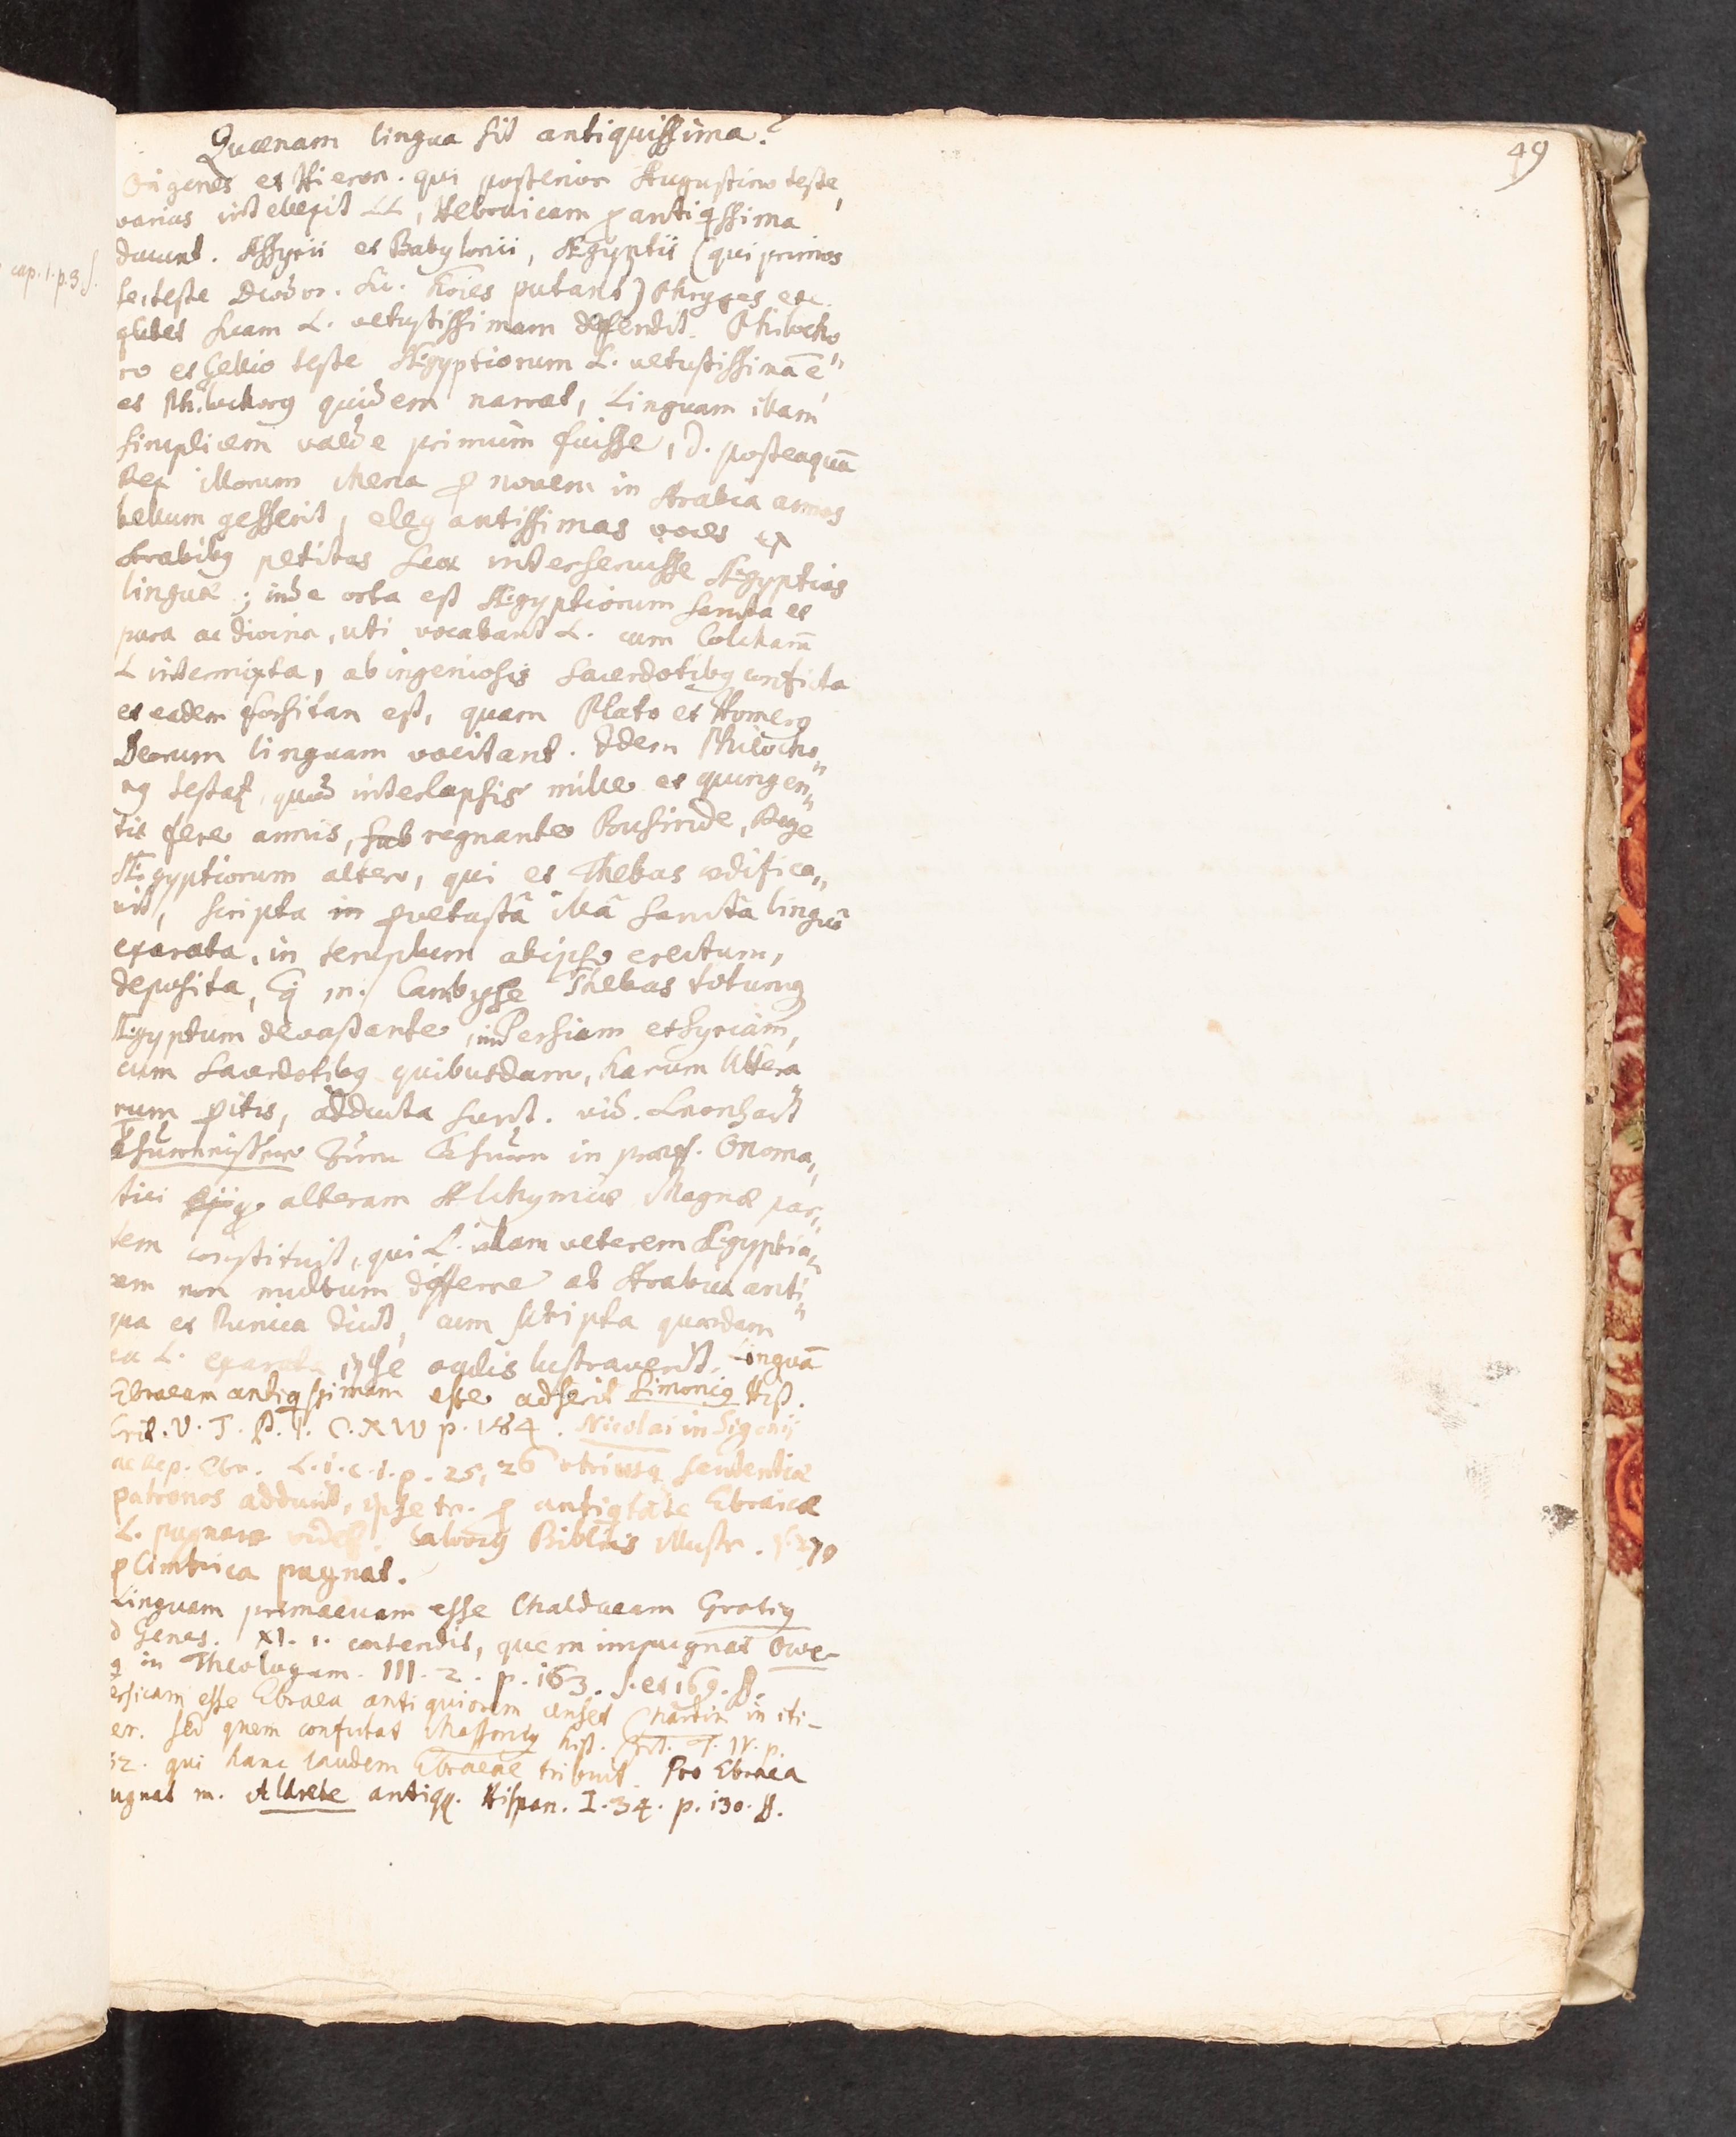 Quænam lingua sit antiquissima?
49
Origenes et Hieron. qui posterior Augustino teste,
varias intellexit LL, Hebraicam p antiqssima
ducunt. Assyrii et Babylonii, Ægyptii (qui primos
cap. 1. p. 3 s.
se, teste Diodor. Sic. hoies putant) Phryges etc.
qlibet suam L. vetustissimam deffendit. Philocho
ro et Gellio teste Ægyptiorum L. vetustissima ē"
et Philochorq quidem narrat, Linguam illam
simplicem valde primum fuisse, d. posteaquā
Rex illorum Mena p novem in Arabia annos
bellum gesserit, elegantissimas voces ex
Arabibq petitas suæ inseruisse Ægyptias
linguæ; inde orta est Ægyptiorum sancta et
pura ac divina, uti vocabant L. cum Colcharū
L intermixta, ab ingeniosis sacerdotibq conficta
et eadem forsitan est, quam Plato et Homerq
Deorum linguam vocitant. Idem Philocho"
rq testat, quod interlapsis mille et quingen"
tis fere annis, sub regnante Busiride, Rege
Ægyptiorum altero, qui et Thebas ædifica"
vit, scripta in pvetustâ illâ sanctâ linguâ
exarata, in templum ab ipso erectum,
deposita, m. Cambyse Thebas totumq
Ægyptum devastante, in Persiam et Syriam,
cum sacerdotibq quibusdam, harum littera
rum pitis, adducta sunt. vid. Leonhart
Thurneisser Zum Thurn in præf. Onoma"
tici alteram Alchymiæ Magnæ par"
tem constituit, qui L. illam veterem Ægyptia"
cam non multum differre ab Arabica anti"
qua et Punica dicit, cum scripta quædam
ea L. exarata, ipse oculis lustraverit. Linguā
Ebraeam antiqssimam esse adserit Simoniq Hist.
Crit. V. T. P. I. C. XIV p. 184. Nicolai in Sigonij
de Rep. Ebr. L. i. c. i. p. 25, 26 utriusq sententiæ
patronos adducit, ipse tn. p antiqtate Ebraicæ
L. pugnare videt. Calovq Bibliis illustr. p. 270
p Cimbrica pugnat.
Linguam primaevam esse Chaldaeam Grotiq
d Genes. XI. 1. contendit, quem impugnat Owe-
q in Theologum. III. 2. p. 163. s. et 169. ss.
ersicam esse Ebraea antiquiorem censet Chardin in iti-
er. sed quem confutat Massoniq hist. Crit. T. IV. p.
52. qui hanc laudem Ebraeae tribuit. Pro Ebraea
ugnat m. Aldrete antiqq. Hispan. I. 34. p. 130. ss.